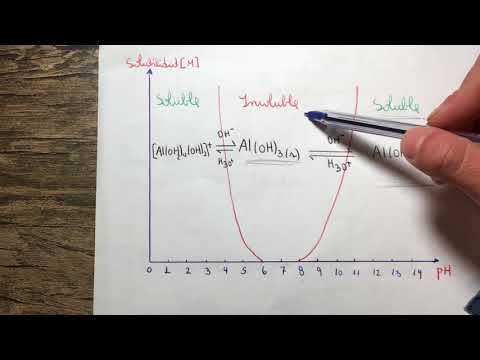 Solubilidad [M]
Soluble Insoluble Soluble
[Al(OH₂)₄(OH)₂]⁺ OH⁻ ⇌ H₃O⁺ Al(OH)₃(s) OH⁻ ⇌ H₃O⁺ Al(OH)
0 1 2 3 4 5 6 7 8 9 10 11 12 13 14 pH